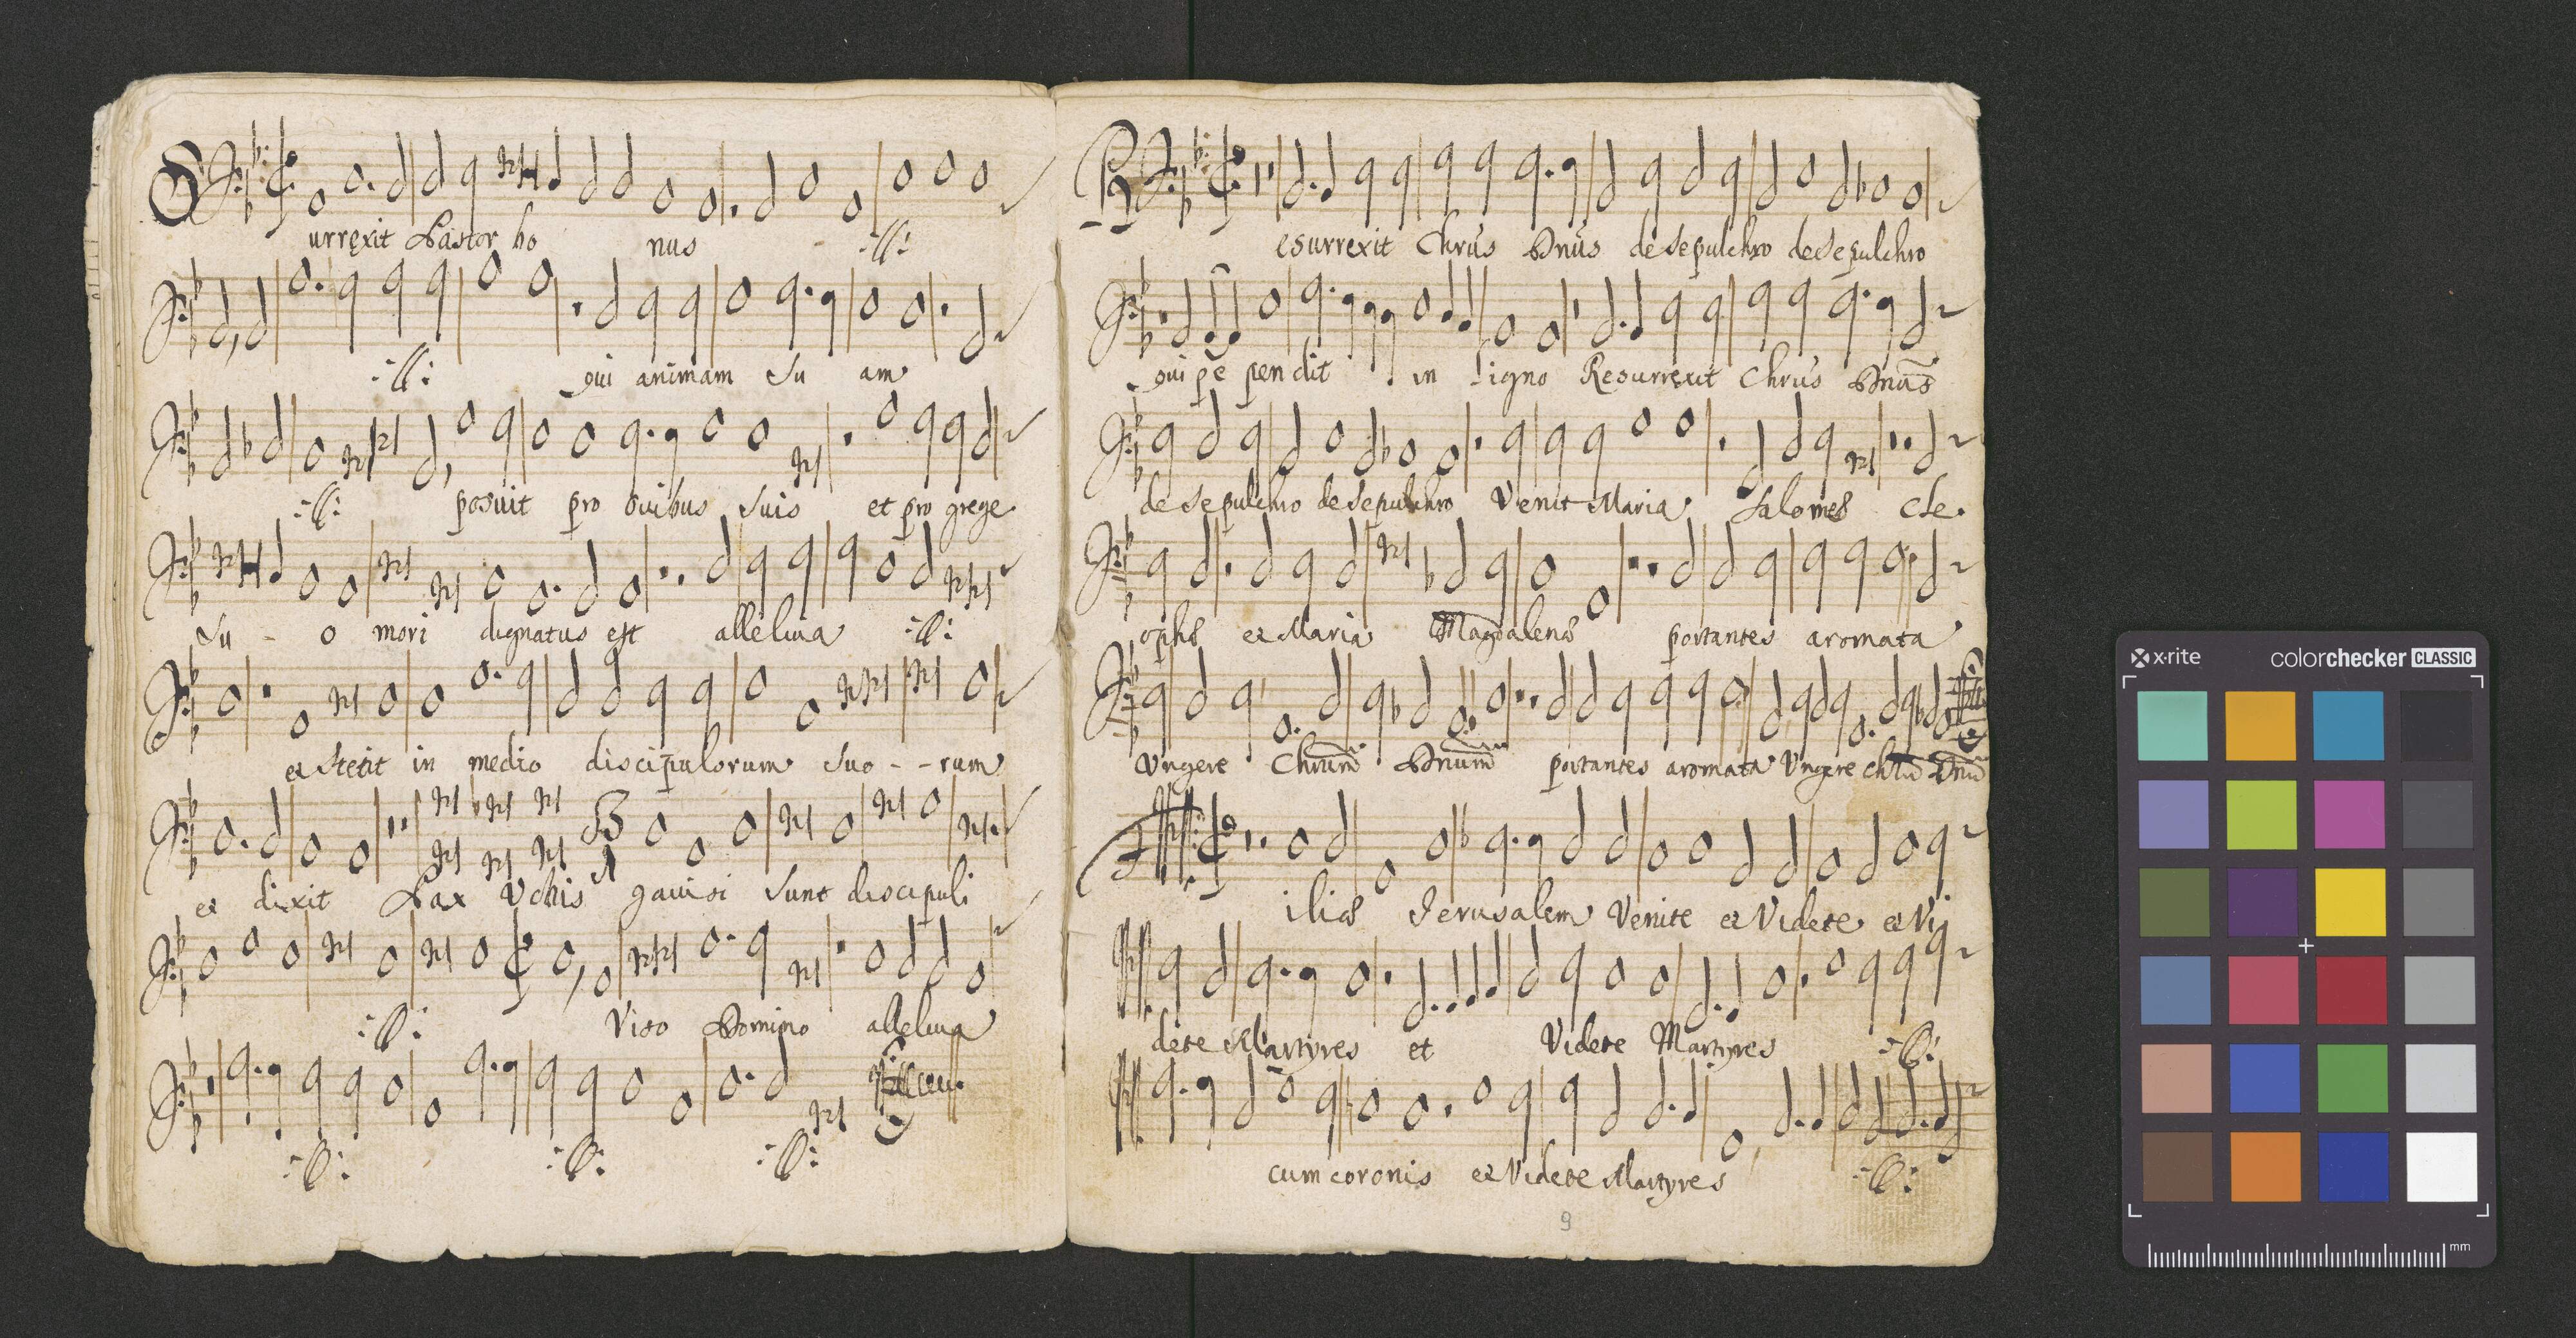 Surrexit Pastor bo nus :ll:
:ll: qui animam su am
:ll: posuit pro ovibus suis et pro grege
su - o mori dignatus est alleluia :ll:
et stetit in medio discipulorum suo - - rum
et dixit Pax Vobis gavisi sunt discipuli
:ll: Viso Domino alleluia
:ll: :ll: :ll:
Resurrexit Chrũs Dnũs de sepulchro de sepulchro
qui pe pendit in ligno Resurrexit Chrũs Dnũs
de sepulchro de sepulchro Venit Maria Salomes Cle.
ophe et Maria Magdalene portantes aromata
Vngere Chrum̃ Dnum̃ portantes aromata Vngere Chrũ Dnũ
Filiae Jerusalem Venite et Videte et Vi
dete Martyres et Videte Martyres :ll:
cum coronis et Videte Martyres :ll:
9
x-rite colorchecker CLASSIC
mm